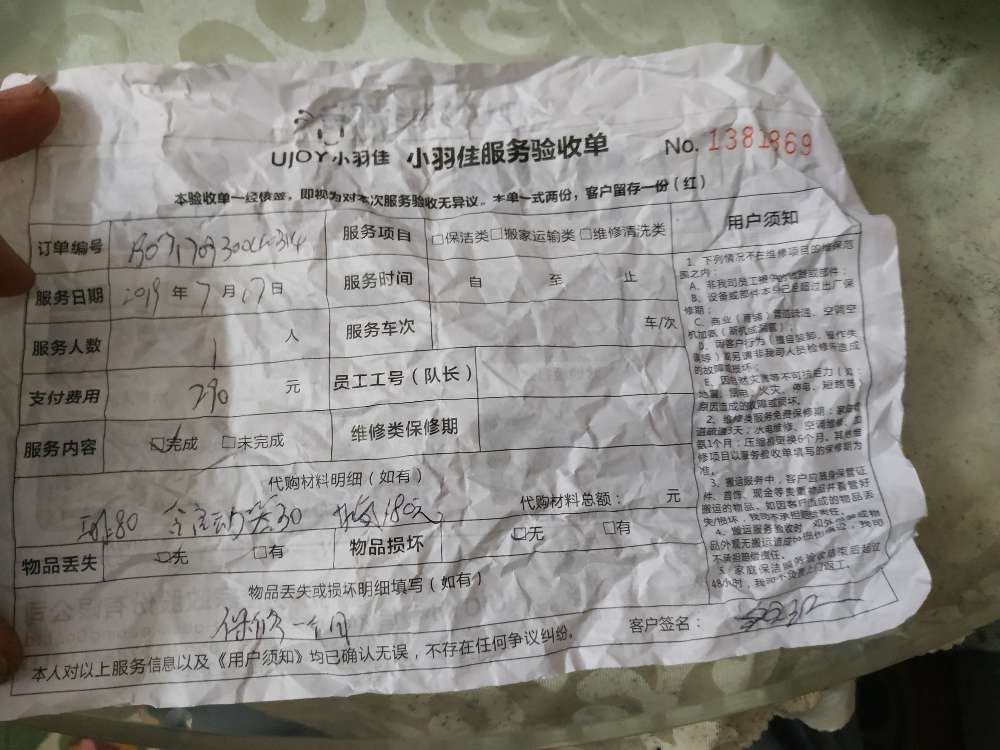 UJOY小羽佳 小羽佳服务验收单 No. 1381869
本验收单一经核签，即视为对本次服务验收无异议。本单一式两份，客户留存一份（红）
订单编号 服务项目 □保洁类□搬家运输类□维修清洗类
服务日期 2019 年 7 月 17 日 服务时间 自 至 止
服务人数 1 人 服务车次 车/次
支付费用 290 元 员工工号（队长）
服务内容 ☑完成 □未完成 维修类保修期
代购材料明细（如有） 代购材料总额： 元
80 30 180元
物品丢失 ☑无 □有 物品损坏 ☑无 □有
物品丢失或损坏明细填写（如有）
保修一个月
客户签名：
本人对以上服务信息以及《用户须知》均已确认无误，不存在任何争议纠纷。
用户须知
1、下列情况不在维修项目的维保范
围之内：
A、非我司员工提供的或部件；
B、设备或部件本身已超过出厂保
修期；
C、商业（店铺）管道疏通、空调空
机加氨（新机或漏氨）；
D、因客户行为（擅自装卸、操作失
误等）或另请非我司人员检修等造成
的故障或损坏；
E、因自然灾害等不可抗拒力（如：
地震、雷电、火灾、停电、短路等）
原因造成的故障或损坏。
2、维修类服务免费保修期：家庭管
道疏通3天；水电维修、空调维修、加
氨1个月；压缩机更换6个月。其他维
修项目以服务验收单填写的保修期为
准。
3、搬运服务中，客户应随身保管证
件、首饰、现金等贵重物品并看管好
搬运的物品，如因客户造成的物品丢
失/损坏，我司不承担赔偿责任。
4、搬运服务验收时，如外包装或物
品外观无搬运造成的损伤痕迹，我司
不承担赔偿责任。
5、家庭保洁服务验收结束后超过
48小时，我司不负责上门返工。